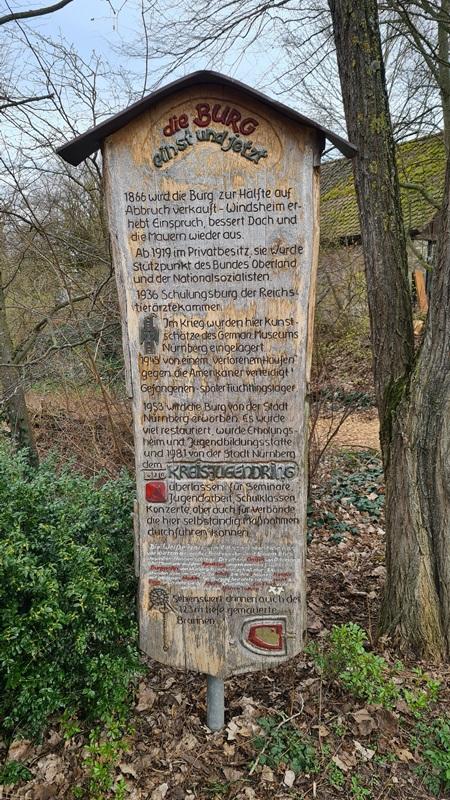 die BURG
einst und jetzt
1866 wird die Burg zur Hälfte auf
Abbruch verkauft - Windsheim er-
hebt Einspruch, bessert Dach und
die Mauern wieder aus.
Ab 1919 im Privatbesitz, sie wurde
Stützpunkt des Bundes Oberland
und der Nationalsozialisten.
1936 Schulungsburg der Reichs-
tierärztekammer.
Im Krieg wurden hier Kunst-
schätze des German. Museums
Nürnberg eingelagert.
1945 von einem "verlorenen Haufen"
gegen die Amerikaner verteidigt
Gefangenen - später Flüchtlingslager.
1953 wird die Burg von der Stadt
Nürnberg erworben. Es wurde
viel restauriert, wurde Erholungs-
heim und Jugendbildungsstätte
und 1981 von der Stadt Nürnberg
dem KREISJUGENDRING
überlassen: für Seminare,
Jugendarbeit, Schulklassen,
Konzerte, aber auch für Verbände
die hier selbständig Maßnahmen
durchführen können.
Sehenswert drinnen auch der
123m tiefe gemauerte
Brunnen.